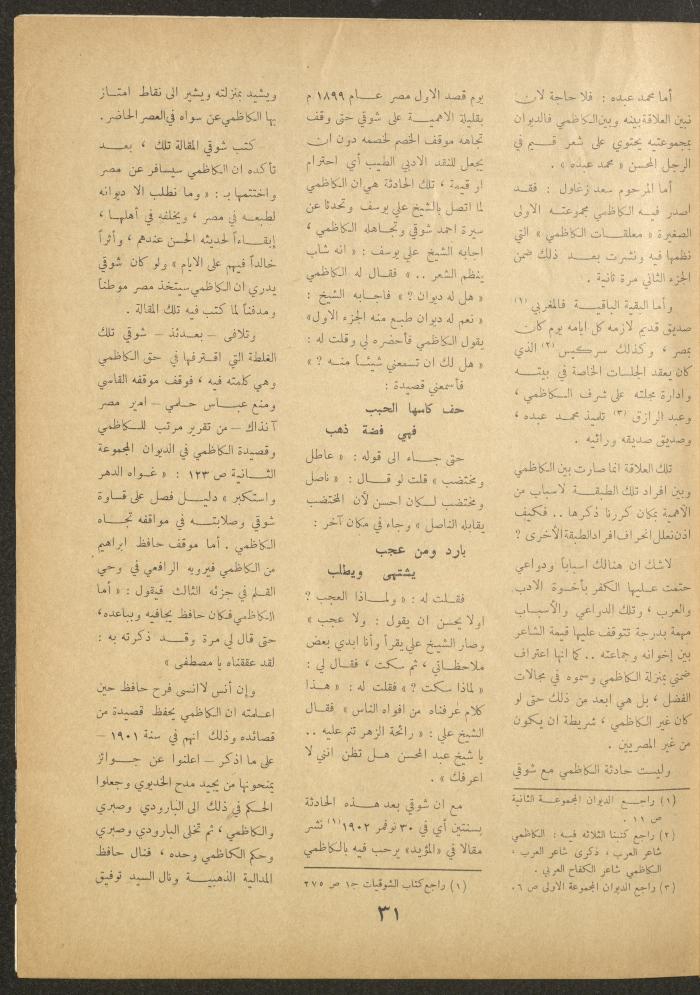 أما محمد عبده : فلا حاجة لان
نبين العلاقة بينه وبين الكاظمي فالديوان
بمجموعتيه يحتوي على شعر قيم في
الرجل المحسن « محمد عبده » .
أما المرحوم سعد زغلول : فقد
أصدر فيه الكاظمي مجموعته الاولى
الصغيرة « معلقات الكاظمي » التي
نظمها فيه ونشرت بعد ذلك ضمن
الجزء الثاني مرة ثانية .
وأما البقية الباقية فالمغربي (١)
صديق قديم لازمه كل ايامه يوم كان
بمصر ، وكذلك سركيس (٢) الذي
كان يعقد الجلسات الخاصة في بيته
وادارة مجلته على شرف الكاظمي ،
وعبد الرازق (٣) تلميذ محمد عبده ،
وصديق صديقه وراثيه .
تلك العلاقة انما صارت بين الكاظمي
وبين افراد تلك الطبقة لاسباب من
الاهمية بمكان كررنا ذكرها .. فكيف
اذن نعلل انحراف افراد الطبقة الأخرى ؟
لاشك ان هنالك اسباباً ودواعي
حتمت عليها الكفر بأخوة الادب
والعرب ، وتلك الدواعي والأسباب
مهمة بدرجة تتوقف عليها قيمة الشاعر
بين إخوانه وجماعته .. كا انها اعتراف
ضمني بمنزلة الكاظمي وسموه في مجالات
الفضل ، بل هي ابعد من ذلك حتى لو
كان غير الكاظمي ، شريطة ان يكون
من غير المصريين .
وليست حادثة الكاظمي مع شوقي
(١) راجع الديوان المجموعة الثانية
ص ١١ .
(٢) راجع كتبنا الثلاثه فيه : الكاظمي
شاعر العرب ، ذكرى شاعر العرب ،
الكاظمي شاعر الكفاح العربي .
(٣) راجع الديوان المجموعة الاولى ص ٦.
يوم قصد الاول مصر عام ١٨٩٩ م
بقليلة الاهمية على شوقي حتى وقف
تجاهه موقف الخصم لخصمه دون ان
يجعل للنقد الادبي الطيب أي احترام
او قيمة ، تلك الحادثة هي ان الكاظمي
لما اتصل بالشيخ علي يوسف وتحدثا عن
سيرة احمد شوقي وتجاهله الكاظمي ،
اجابه الشيخ علي يوسف : « انه شاب
ينظم الشعر .. » فقال له الكاظمي
« هل له ديوان ? » فاجابه الشيخ :
« نعم له ديوان طبع منه الجزء الاول»
يقول الكاظمي فأحضره لي وقلت له :
« هل لك ان تسمعني شيئاً منه ? »
فأسمعني قصيدة :
حف كاسها الحبب
فهي فضة ذهب
حتى جاء الى قوله : « عاطل
ومختضب » قلت لو قال : « ناصل
ومختضب لكان احسن لأن المختضب
يقابله الناصل » وجاء في مكان آخر :
بارد ومن عجب
يشتهى ويطلب
فقلت له : « ولماذا العجب ?
اولا يحسن ان يقول : ولا عجب »
وصار الشيخ علي يقرأ وأنا ابدي بعض
ملاحظاتي ، ثم سكت ، فقال لي :
« لماذا سكت ? » فقلت له : « هذا
كلام عرفناه من افواه الناس » فقال
الشيخ علي : « رائحة الزهر تنم عليه ..
يا شيخ عبد المحسن هل تظن انني لا
اعرفك » .
مع ان شوقي بعد هذه الحادثة
بسنتين أي في ٣٠ نوفمبر ١٩٠٢ (١) نشر
مقالا في «المؤيد» يرحب فيه بالكاظمي
(١) راجع كتاب الشوقيات ج١ ص ٢٧٥
ويشيد بمنزلته ويشير الى نقاط امتاز
بها الكاظمي عن سواه في العصر الحاضر.
كتب شوقي المقالة تلك ، بعد
تأكده ان الكاظمي سيسافر عن مصر
واختتمها بـ : « وما نطلب الا ديوانه
لطبعه في مصر ، ويخلفه في أهلها ،
إبقاءاً لحديثه الحسن عندهم ، وأثراً
خالداً فيهم على الايام » ولو كان شوقي
يدري ان الكاظمي سيتخذ مصر موطناً
ومدفناً لما كتب فيه تلك المقالة .
وتلافى – بعدئذ – شوقي تلك
الغلطة التي اقترفها في حق الكاظمي
وهي كلمته فيه ، فوقف موقفه القاسي
ومنع عباس حلمي – امير مصر
آنذاك – من تقرير مرتب للكاظمي
وقصيدة الكاظمي في الديوان المجموعة
الثانية ص ١٢٣ : « غواه الدهر
واستكبر » دليل فصل على قساوة
شوقي وصلابته في مواقفه تجاه
الكاظمي . أما موقف حافظ ابراهيم
من الكاظمي فيرويه الرافعي في وحي
القلم في جزئه الثالث فيقول : « أما
الكاظمي فكان حافظ يجافيه ويباعده،
حتى قال لي مرة وقد ذكرته به :
لقد عققناه يا مصطفى »
وإن أنس لا انسى فرح حافظ حين
اعلمته ان الكاظمي يحفظ قصيدة من
قصائده وذلك انهم في سنة ١٩٠١ –
على ما اذكر – اعلنوا عن جوائز
يمنحونها من يجيد مدح الخديوي وجعلوا
الحكم في ذلك الى البارودي وصبري
والكاظمي ، ثم تخلى البارودي وصبري
وحكم الكاظمي وحده ، فنال حافظ
المدالية الذهبية ونال السيد توفيق
٣١